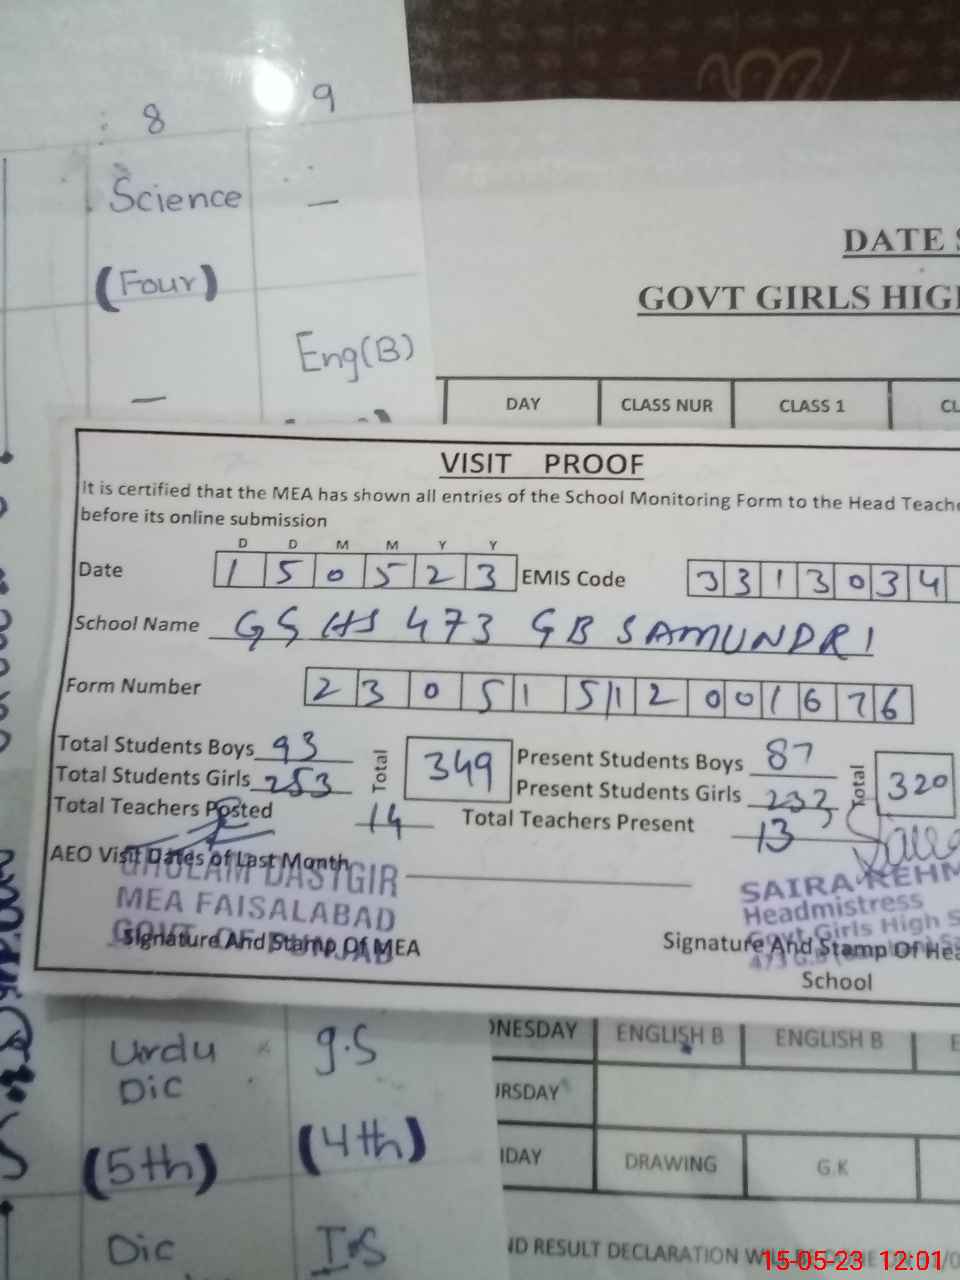 8 9
Science —
(Four)
Eng(B)
—
DATE
GOVT GIRLS HIG
DAY CLASS NUR CLASS 1 CL
VISIT PROOF
It is certified that the MEA has shown all entries of the School Monitoring Form to the Head Teache
before its online submission
D D M M Y Y
Date 1 5 0 5 2 3 EMIS Code 3 3 1 3 0 3 4
School Name GGHS 473 GB SAMUNDRI
Form Number 2 3 0 5 1 5 1 2 0 0 1 6 7 6
Total Students Boys 93 Total 349 Present Students Boys 87 Total 320
Total Students Girls 253 Present Students Girls 233
Total Teachers Posted 14 Total Teachers Present 13
AEO Visit Dates of Last Month
GHULAM DASTGIR
MEA FAISALABAD
GOVT. OF PUNJAB
Signature And Stamp Of MEA
SAIRA REHM
Headmistress
Govt Girls High S
Signature And Stamp Of Hea
School
Urdu g.S
Dic
(5th) (4th)
Dic I.S
DNESDAY ENGLISH B ENGLISH B E
URSDAY
IDAY DRAWING G.K
ND RESULT DECLARATION
15-05-23 12:01